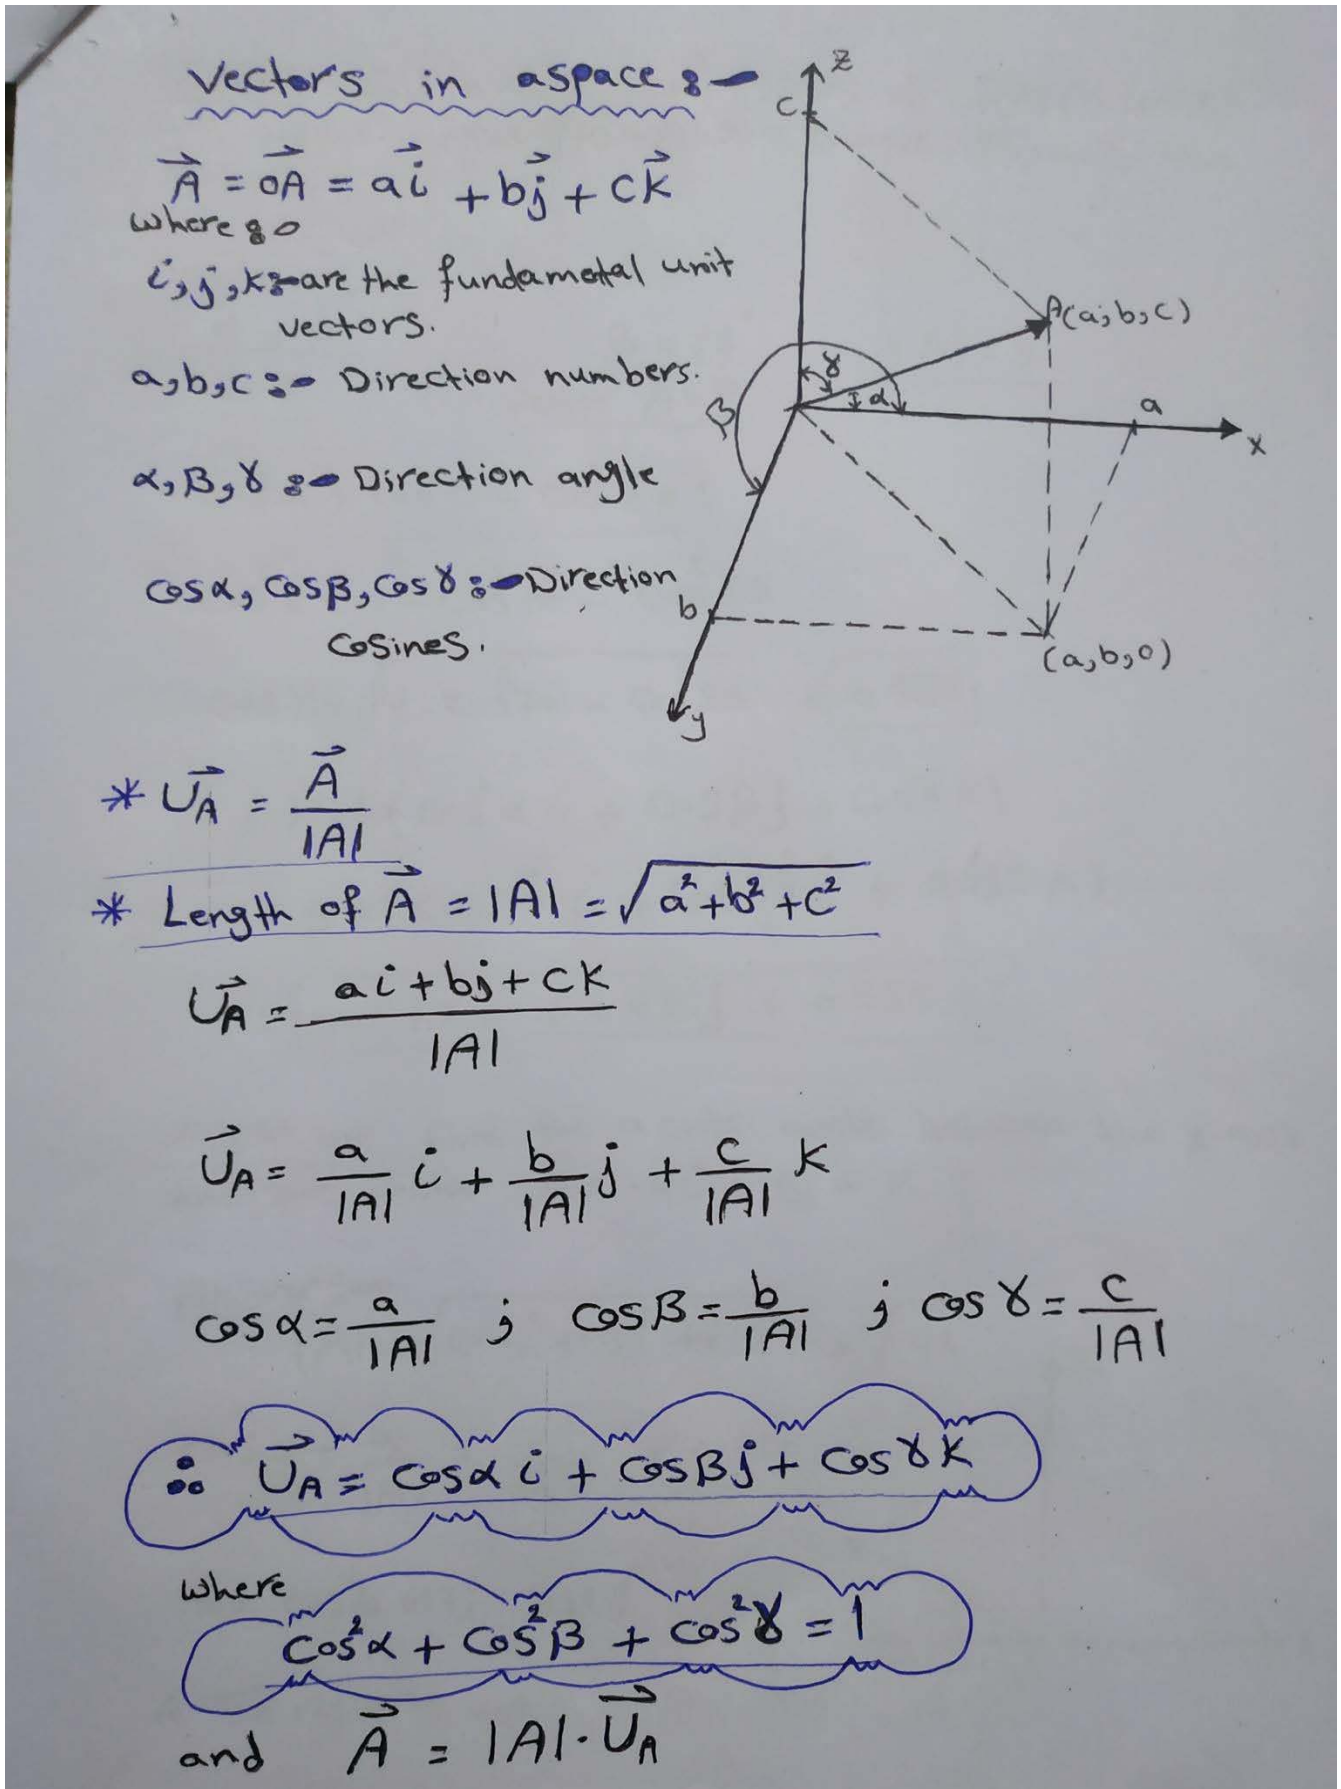 Vectors in aspace :-
A⃗ = 0A⃗ = ai⃗ + bj⃗ + ck⃗
where :-
i, j, k :- are the fundametal unit
vectors.
a, b, c :- Direction numbers.
α, β, γ :- Direction angle
cosα, cosβ, cosγ :- Direction
cosines.
z
c
A(a, b, c)
γ
α
β
a
x
b
(a, b, 0)
y
* U⃗A = A⃗ / |A|
* Length of A⃗ = |A| = √(a² + b² + c²)
U⃗A = (ai + bj + ck) / |A|
U⃗A = a/|A| i + b/|A| j + c/|A| k
cosα = a/|A| ; cosβ = b/|A| ; cosγ = c/|A|
∴ U⃗A = cosα i + cosβ j + cosγ k
where
cos²α + cos²β + cos²γ = 1
and A⃗ = |A| · U⃗A